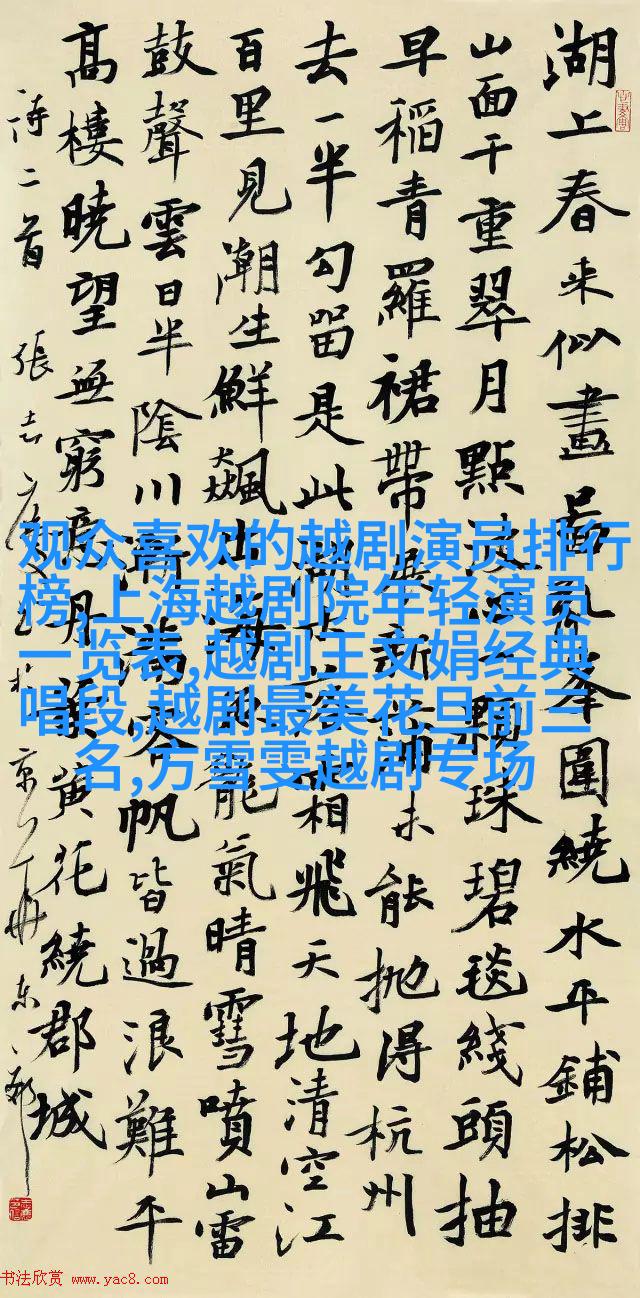 湖上春来似畫啚亂峯圍繞水平鋪松排
山面千重翠月點波心一顆珠碧毯綫頭抽
早稻青羅裙帶展新蒲未能抛得杭州
去一半勾留是此湖木落霜飛天地清空江
百里見潮生鮮飆出海魚龍氣晴雪噴山雷
鼓聲雲日半陰川漸滿客帆皆過浪難平
高樓曉望無窮意丹葉黄花繞郡城
诗二首 張志 於京 東
观众喜欢的越剧演员排行
榜,上海越剧院年轻演员
一览表,越剧王文娟经典
唱段,越剧最美花旦前三
名,方雪雯越剧专场
书法欣赏 www.yac8.com